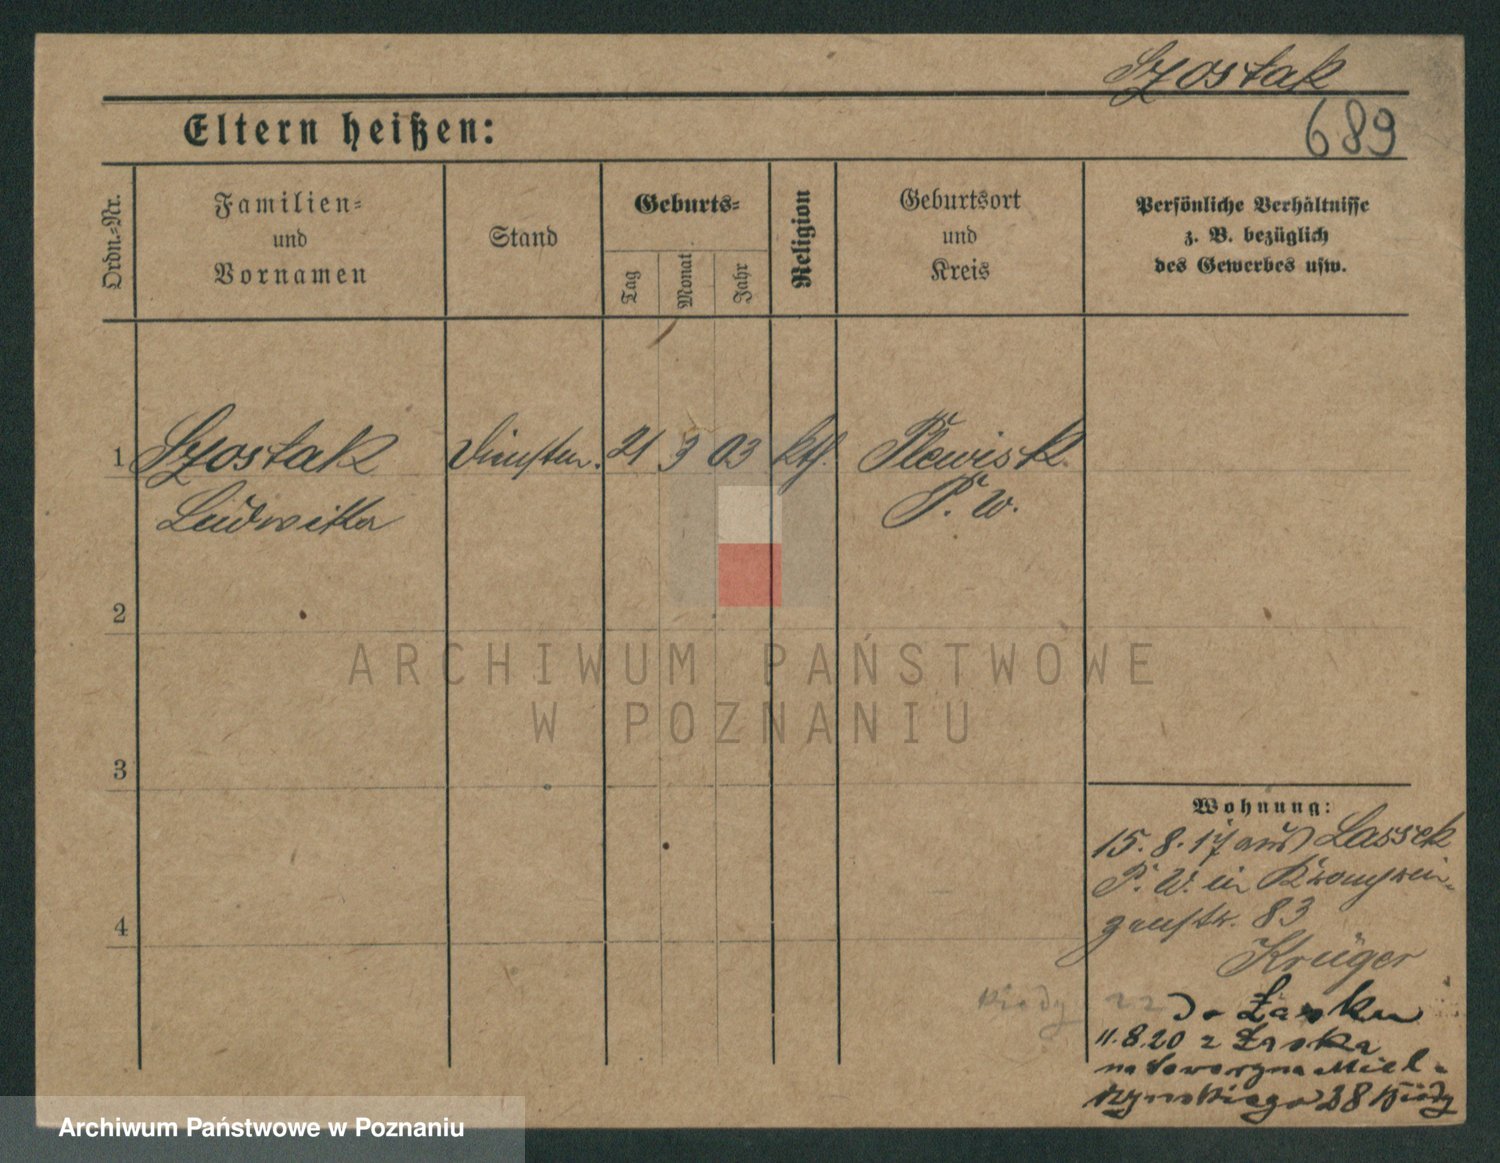 Szostak
689
Eltern heißen:
Ordn.-Nr.
Familien-
und
Vornamen
Stand
Geburts-
Tag
Monat
Jahr
Religion
Geburtsort
und
Kreis
Persönliche Verhältnisse
z. B. bezüglich
des Gewerbes usw.
1 Szostak 21 3 03 kth. Plewisk
Ludwika P. W.
2
3
4
ARCHIWUM PAŃSTWOWE
W POZNANIU
Wohnung:
15. 8. 17 aus Lassek
P. W. in Kronprin-
zenstr. 83
Krüger
Do Łasku
11.8.20 z Łaska
na Seweryna Miel-
żyńskiego 28
Archiwum Państwowe w Poznaniu